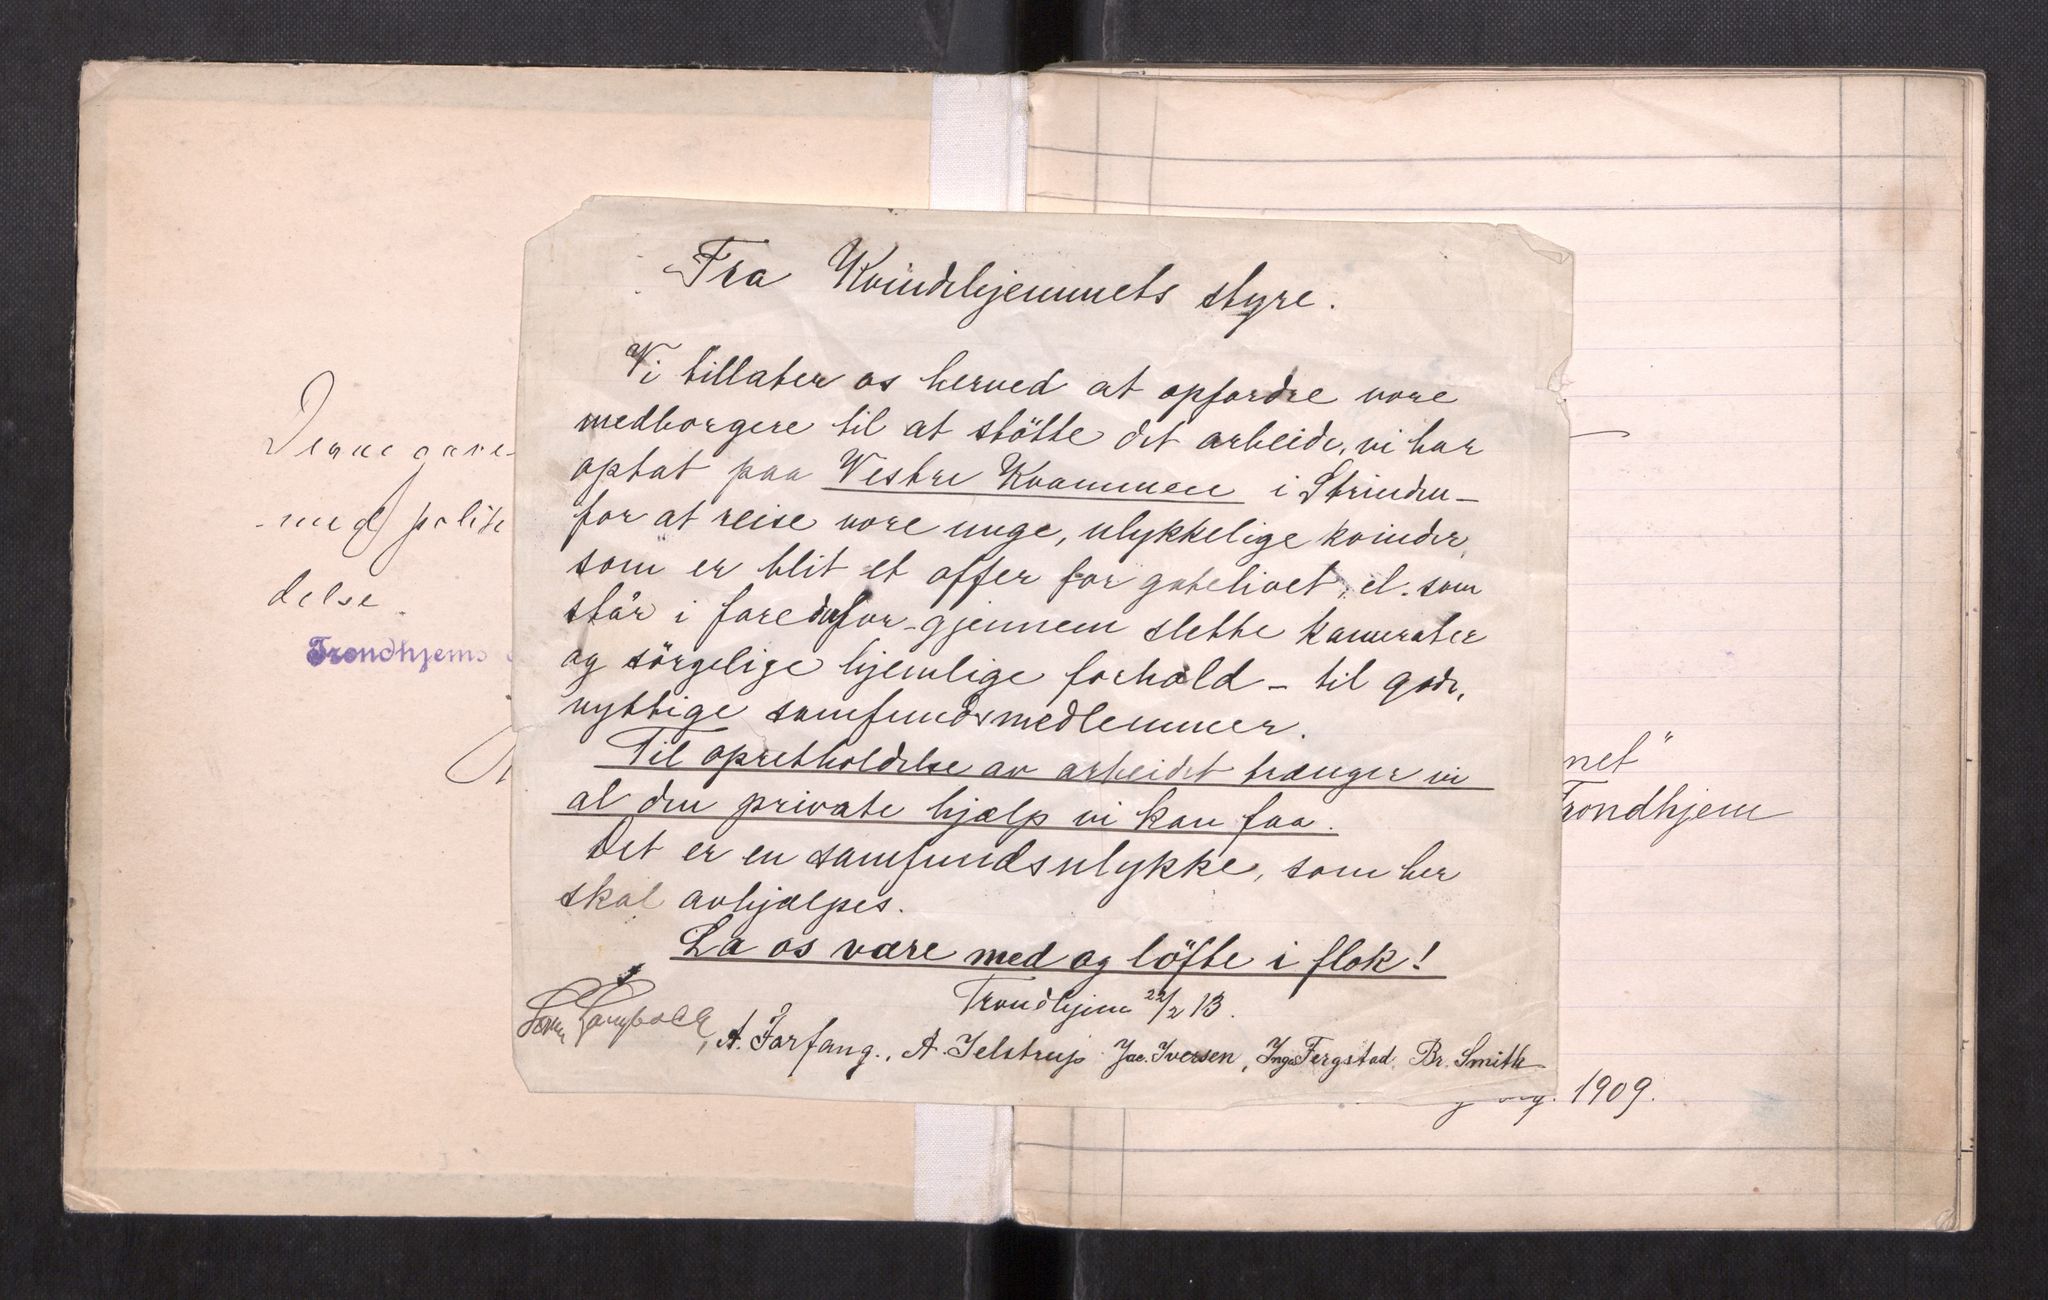 Denne gave-
-med politi
delse.
Trondhjems
Fra Kvindehjemmets styre.
Vi tillater os herved at opfordre vore
medborgere til at stötte det arbeide, vi har
optat paa Vestre Kvammen i Strinden -
for at reise vore unge, ulykkelige kvinder,
som er blit et offer for gatelivet, el. som
står i fare derfor - gjennem slette kamerater
og sörgelige hjemlige forhold - til gode,
nyttige samfundsmedlemmer.
Til opretholdelse av arbeidet trænger vi
al den private hjælp vi kan faa.
Det er en samfundsulykke, som her
skal avhjælpes.
La os være med og löfte i flok!
Trondhjem 22/2 13.
A. Forfang., A. Jelstrup Jac. Iversen, Inga Fergstad, Br. Smith
net"
Trondhjem
1909.